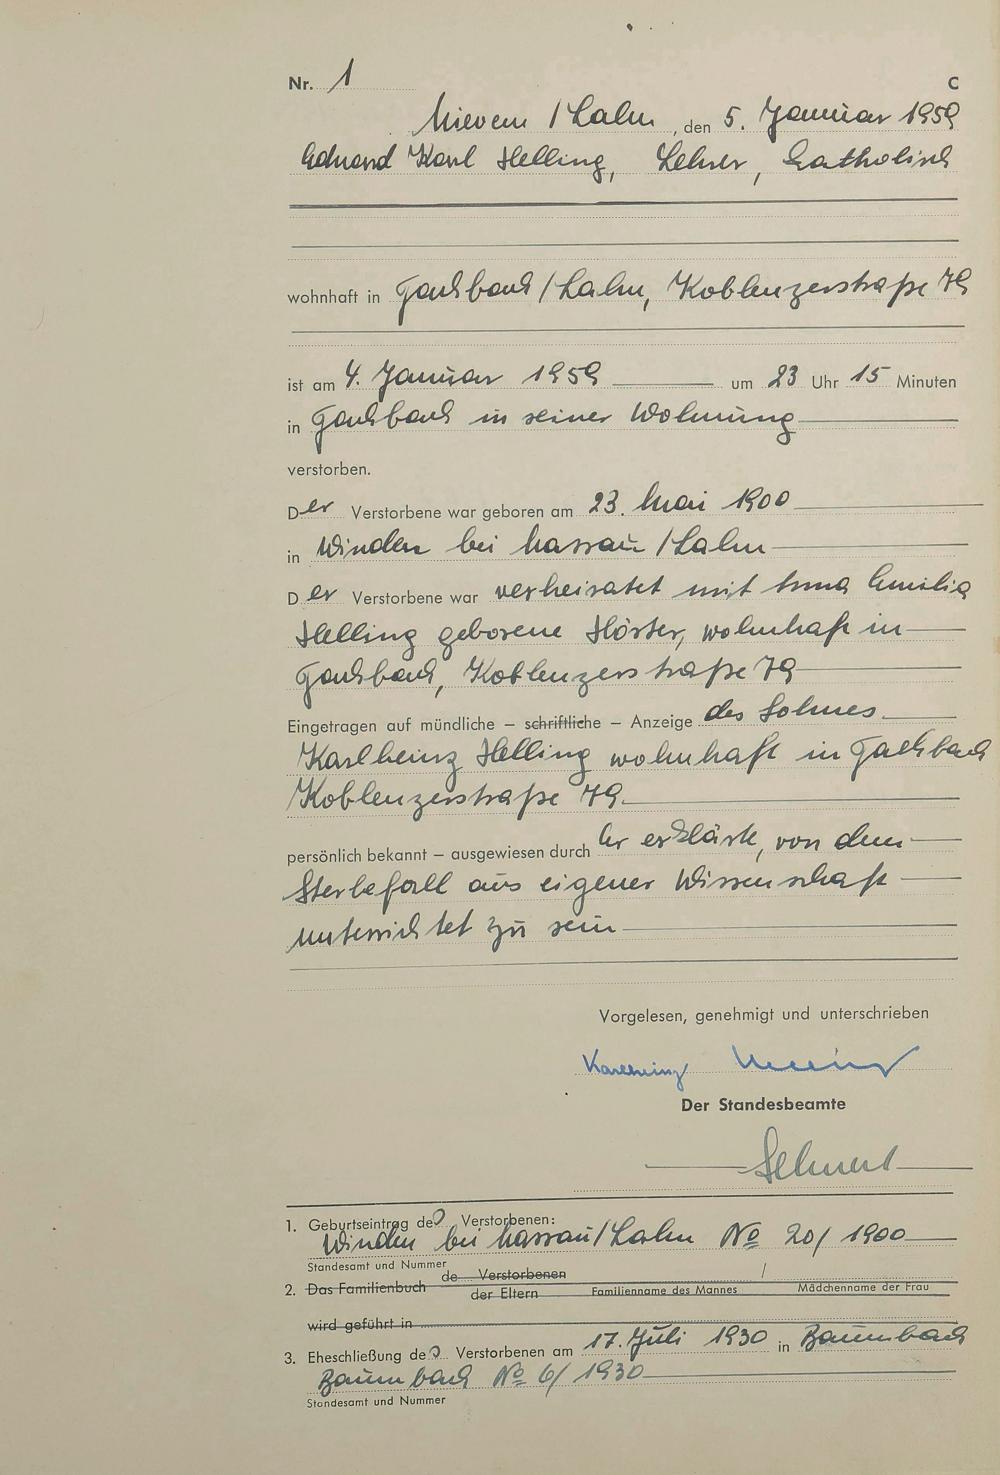 Nr. 1
C
Nievern / Lahn, den 5. Januar 1959
Eduard Karl Helling, Lehrer, katholisch
wohnhaft in Fachbach / Lahn, Koblenzerstraße 79
ist am 4. Januar 1959 um 23 Uhr 15 Minuten
in Fachbach in seiner Wohnung
verstorben.
Der Verstorbene war geboren am 23. Mai 1900
in Winden bei Nassau / Lahn
Der Verstorbene war verheiratet mit Anna Emilia
Helling geborene Hörter, wohnhaft in
Fachbach, Koblenzerstraße 79
Eingetragen auf mündliche – schriftliche – Anzeige des Sohnes
Karlheinz Helling wohnhaft in Fachbach
Koblenzerstraße 79.
persönlich bekannt – ausgewiesen durch Er erklärte, von dem
Sterbefall aus eigener Wissenschaft
unterrichtet zu sein
Vorgelesen, genehmigt und unterschrieben
Karlheinz Helling
Der Standesbeamte
1. Geburtseintrag des Verstorbenen:
Winden bei Nassau / Lahn No 20/1900
Standesamt und Nummer
2. Das Familienbuch de Verstorbenen /
der Eltern Familienname des Mannes Mädchenname der Frau
wird geführt in
3. Eheschließung des Verstorbenen am 17. Juli 1930 in Baumbach
Baumbach No 6/1930
Standesamt und Nummer